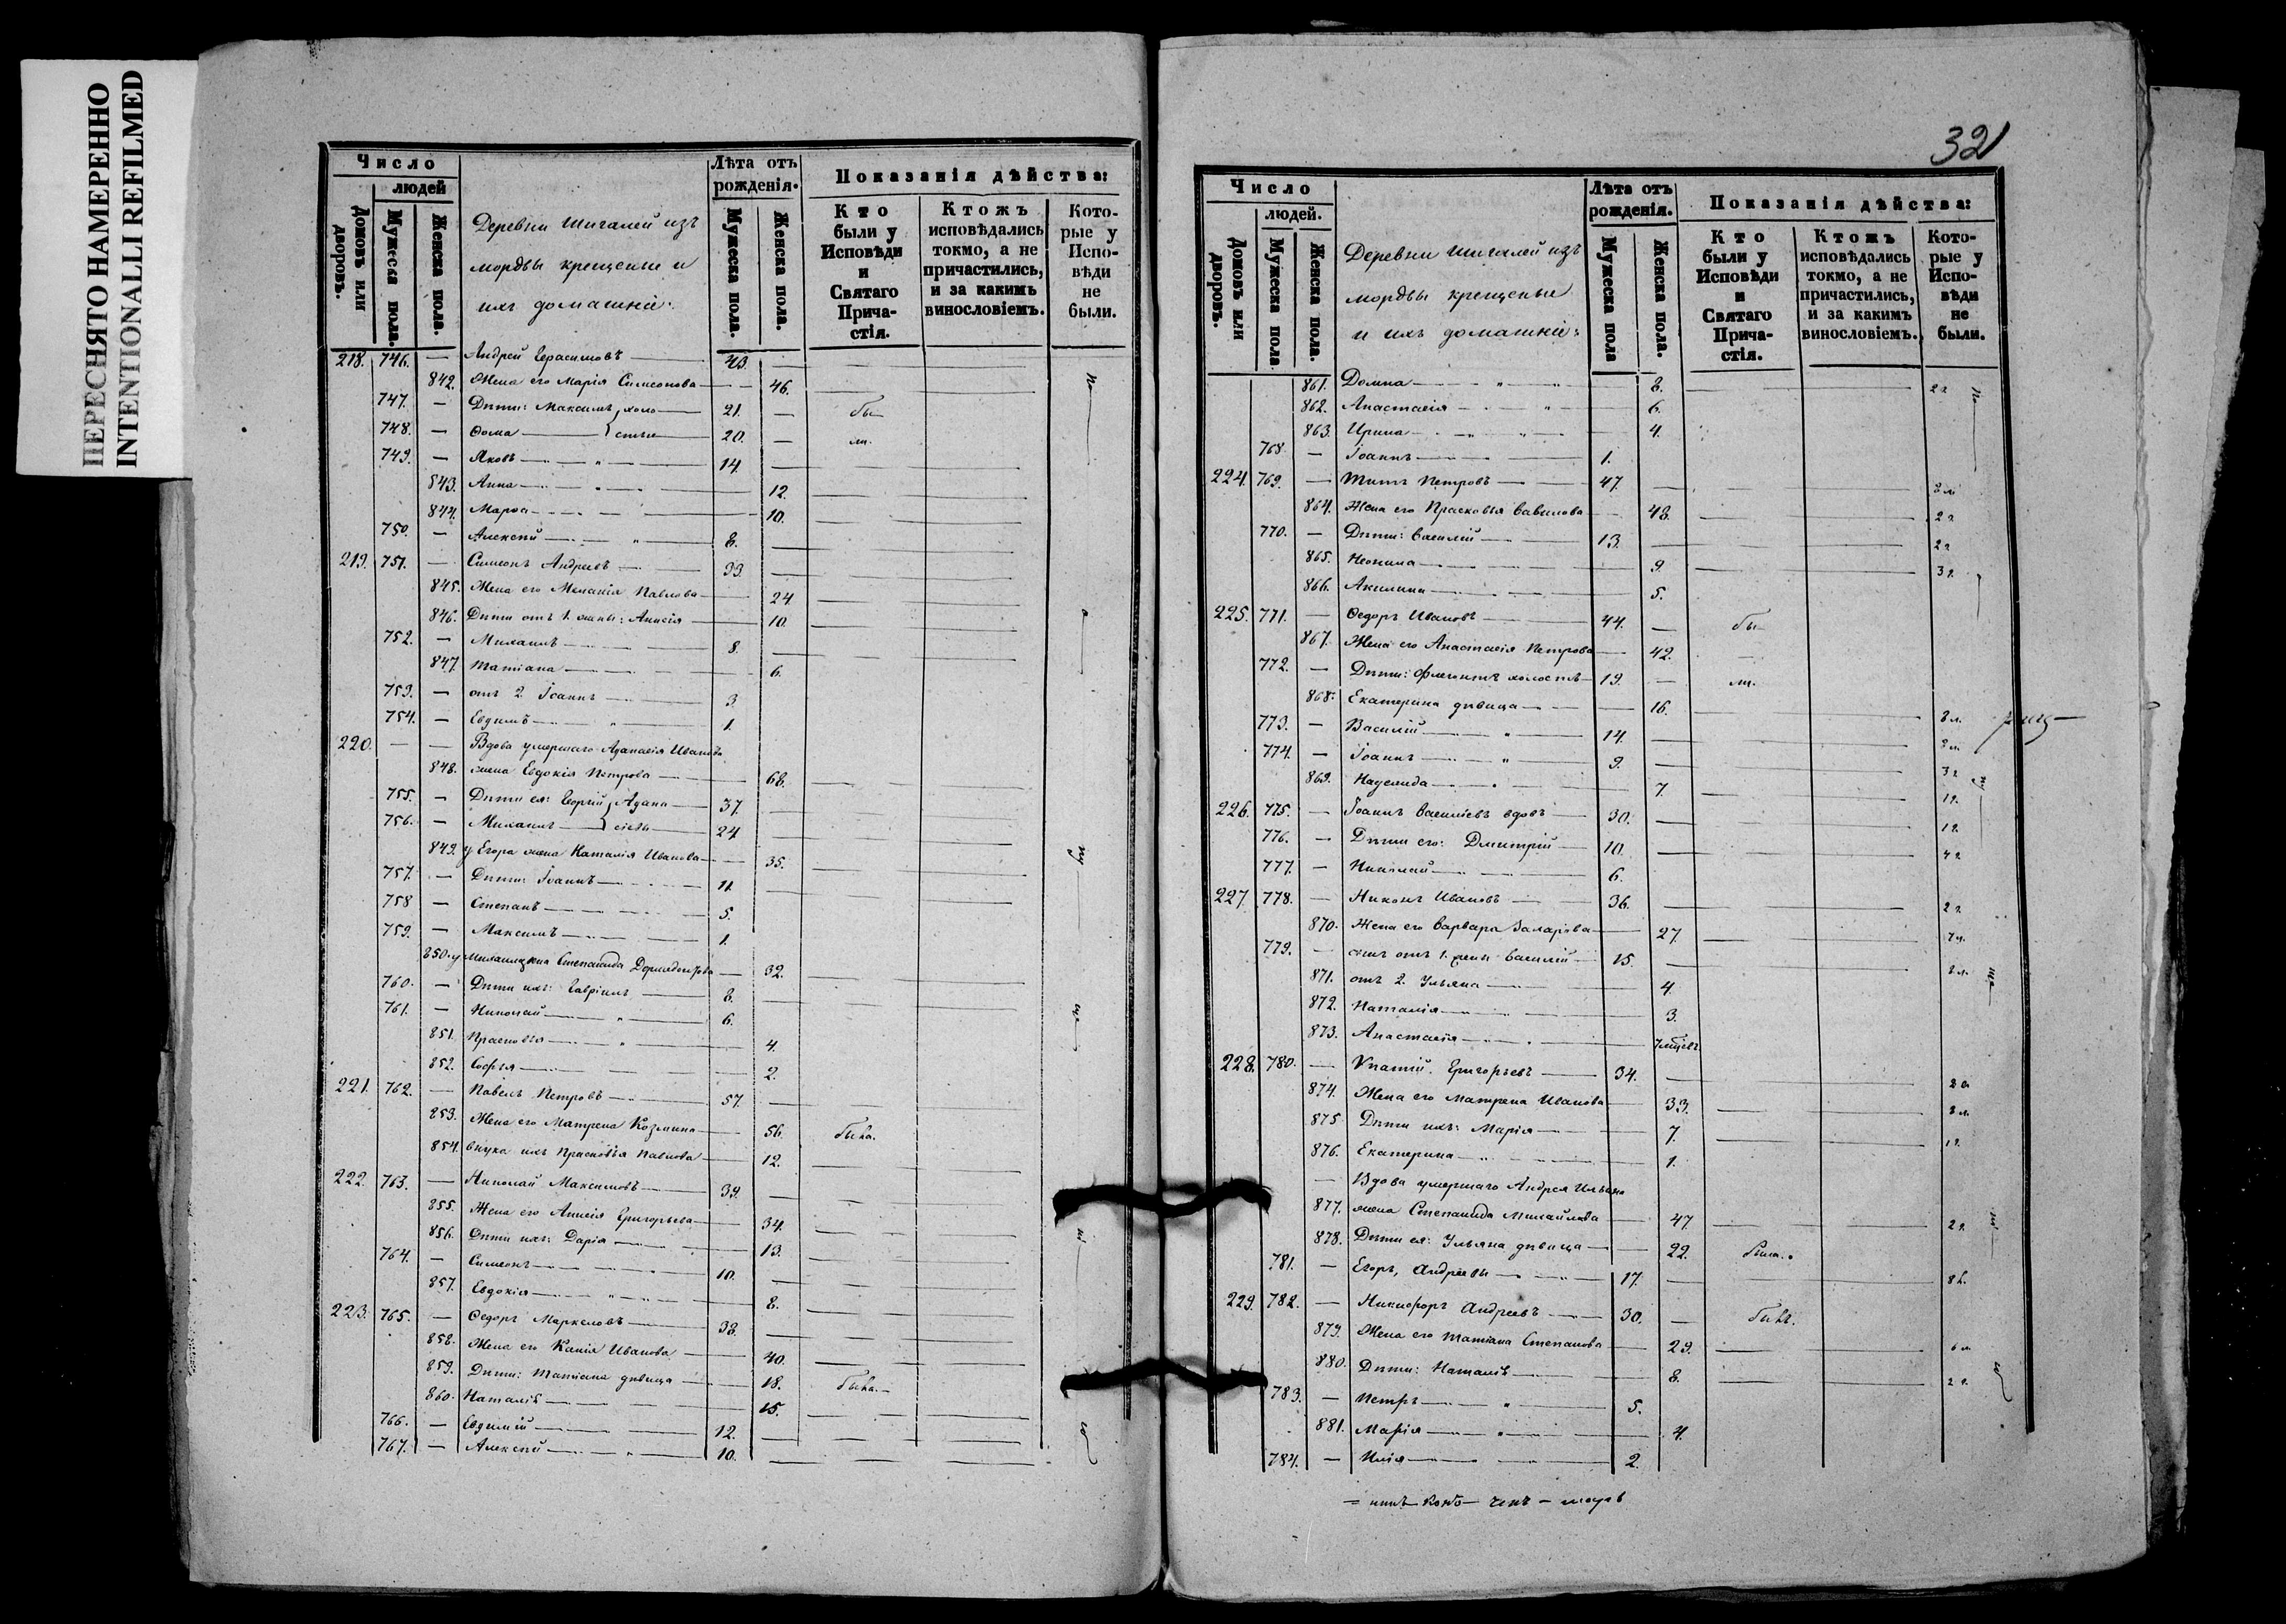 ПЕРЕСНЯТО НАМЕРЕННО
INTENTIONALLI REFILMED
Число
людей
Домовъ или дворовъ.
Мужеска пола.
Женска пола.
Деревни Шигалей изъ
мордвы крещеные и
ихъ домашніе:
Лѣта отъ рожденія.
Мужеска пола.
Женска пола.
Показанія дѣйства:
Кто были у Исповѣди и Святаго Причастія.
Ктожъ исповѣдались токмо, а не причастились, и за какимъ винословіемъ.
Которые у Исповѣди не были.
218. 746. — Андрей Герасимовъ 43.
842. Жена его Марія Симеонова 46.
747. — Дѣти: Максимъ холо 21.
748. — Ѳома стые 20.
749. — Яковъ 14.
843. Анна 12.
844. Марѳа 10.
750. — Алексѣй 8.
219. 751. — Симеонъ Андреевъ 33.
845. Жена его Меланія Павлова 24.
846. Дѣти отъ 1. жены: Анисія 10.
752. — Михаилъ 8.
847. Татіана 6.
753. — отъ 2. Іоаннъ 3.
754. — Евдимъ 1.
220. — — Вдова умершаго Аѳанасія Иванова
848. жена Евдокія Петрова 68.
755. — Дѣти ея: Георгій 37.
756. — Михаилъ 24.
849. у Егора жена Наталія Иванова 35.
757. — Дѣти: Іоаннъ 11.
758 — Степанъ 5.
759. — Максимъ 1.
850. у Михаила жена Степанида 32.
760. — Дѣти ихъ: Гавріилъ 8.
761. — Николай 6.
851. Прасковья 4.
852. Софья 2.
221. 762. — Павелъ Петровъ 57.
853. Жена его Матрена Козмина 56. была.
854. внука ихъ Прасковья Павлова 12.
222. 763. — Николай Максимовъ 39.
855. Жена его Анисія Григорьева 34.
856. Дѣти ихъ: Дарія 13.
764. — Симеонъ 10.
857. Евдокія 8.
223. 765. — Ѳедоръ Маркеловъ 38.
858. Жена его Ксенія Иванова 40.
859. Дѣти: Татіана дѣвица 18. была.
860. Наталія 15.
766. — Евдимій 12.
767. — Алексѣй 10.
321
Число
людей.
Домовъ или дворовъ.
Мужеска пола
Женска пола.
Деревни Шигалей изъ
мордвы крещеные
и ихъ домашніе:
Лѣта отъ рожденія.
Мужеска пола
Женска пола.
Показанія дѣйства:
Кто были у Исповѣди и Святаго Причастія.
Ктожъ исповѣдались токмо, а не причастились, и за какимъ винословіемъ.
Которые у Исповѣди не были.
861. Домна 8.
862. Анастасія 6.
863. Ирина 4.
768. — Іоаннъ 1.
224. 769. — Титъ Петровъ 47.
864. Жена его Прасковья Вавилова 48.
770. — Дѣти: Василій 13.
865. Неонила 9.
866. Акилина 5.
225. 771. — Ѳедоръ Ивановъ 44.
867. Жена его Анастасія Петрова 42.
772. — Дѣти: Флегонтъ холостъ 19.
868. Екатерина дѣвица 16.
773. — Василій 14.
774. — Іоаннъ 9.
869. Надежда 7.
226. 775. — Іоаннъ Васильевъ вдовъ 30.
776. — Дѣти его: Дмитрій 10.
777. — Николай 6.
227. 778. — Никонъ Ивановъ 36.
870. Жена его Варвара Захарова 27.
779. — сынъ отъ 1. жены Василій 15.
871. отъ 2. Ульяна 4.
872. Наталія 3.
873. Анастасія
228. 780. — Ипатій Григорьевъ 34.
874. Жена его Матрена Иванова 33.
875. Дѣти ихъ: Марія 7.
876. Екатерина 1.
— Вдова умершаго Андрея Ильина
877. жена Степанида Михайлова 47.
878. Дѣти ея: Ульяна дѣвица 22. была.
781. — Егоръ, Андреевы 17.
229. 782. — Никифоръ Андреевъ 30. былъ.
879. Жена его Татіана Степанова 29.
880. Дѣти: Наталія 8.
783. — Петръ 5.
881. Марія 4.
784. — Илія 2.